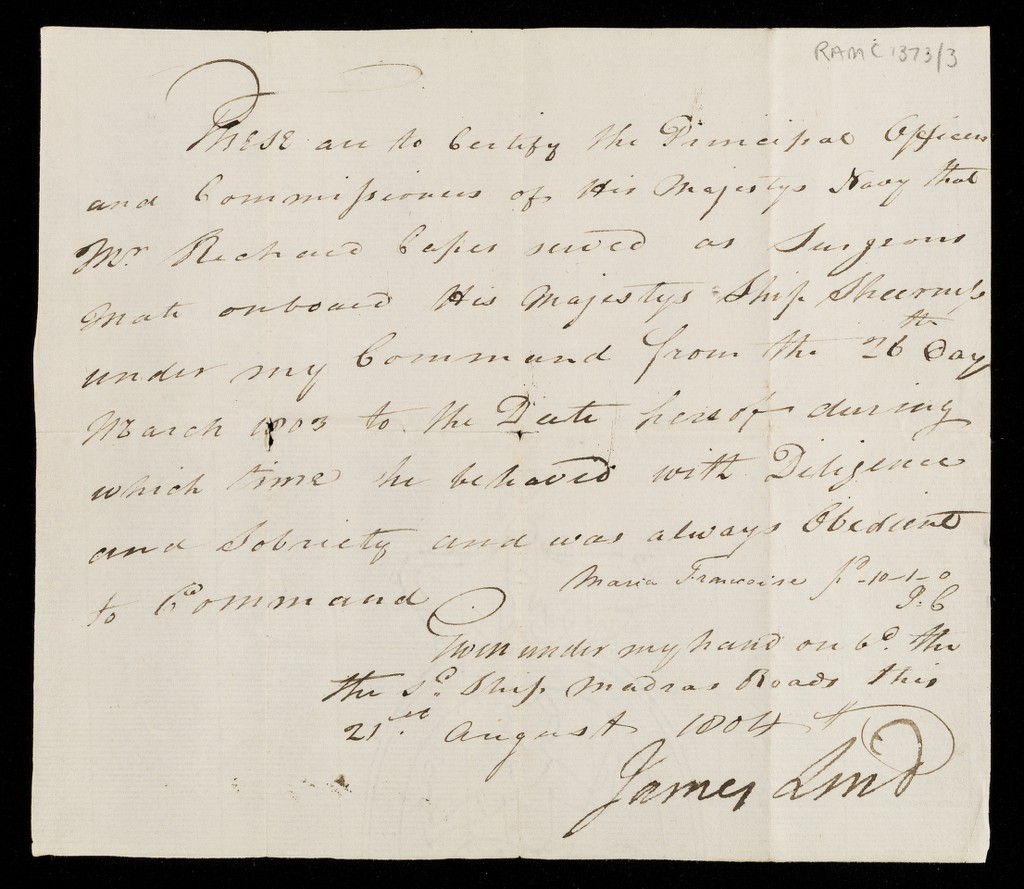 RAMC 1373/3
These are to Certify the Principal Officers
and Commissioners of His Majestys Navy that
Mr Richard Caper served as Surgeons
Mate onboard His Majestys Ship Sheerness
under my Command from the 26th Day
March 1803 to the Date hereof during
which time he behaved with Diligence
and Sobriety and was always Obedient
to Command
Maria Francoise
10-1-0
J. C
Given under my hand on bd. the
the Sd. Ship Madras Roads this
21st August 1804
James Lind